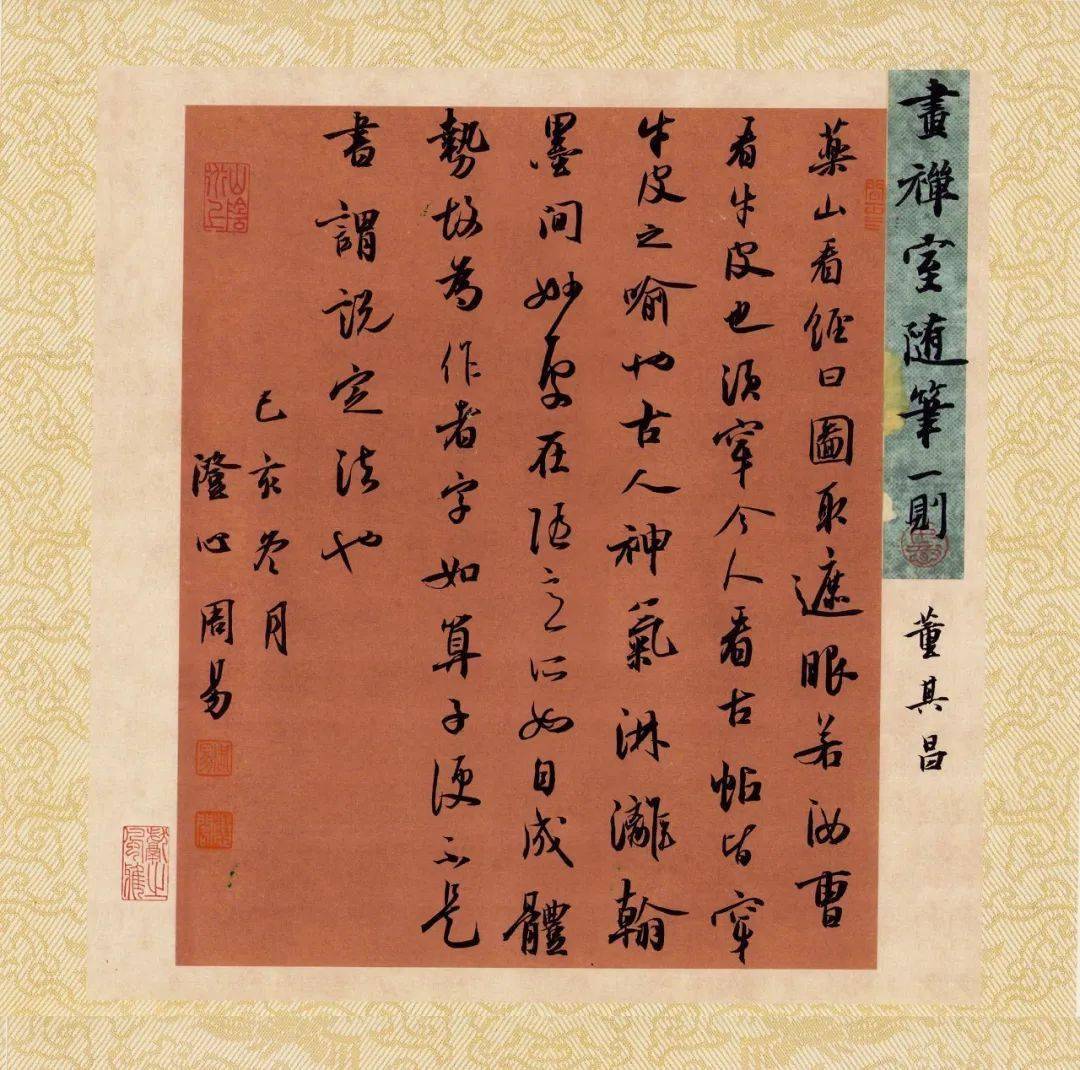 畫禪室随筆一則
董其昌
藥山看經曰圖取遮眼若汝曹
看牛皮也須穿今人看古帖皆穿
牛皮之喻也古人神氣淋灕翰
墨间妙處在随意所如自成體
勢故為作者字如算子便不是
書謂説定法也
己亥冬月
澄心周易